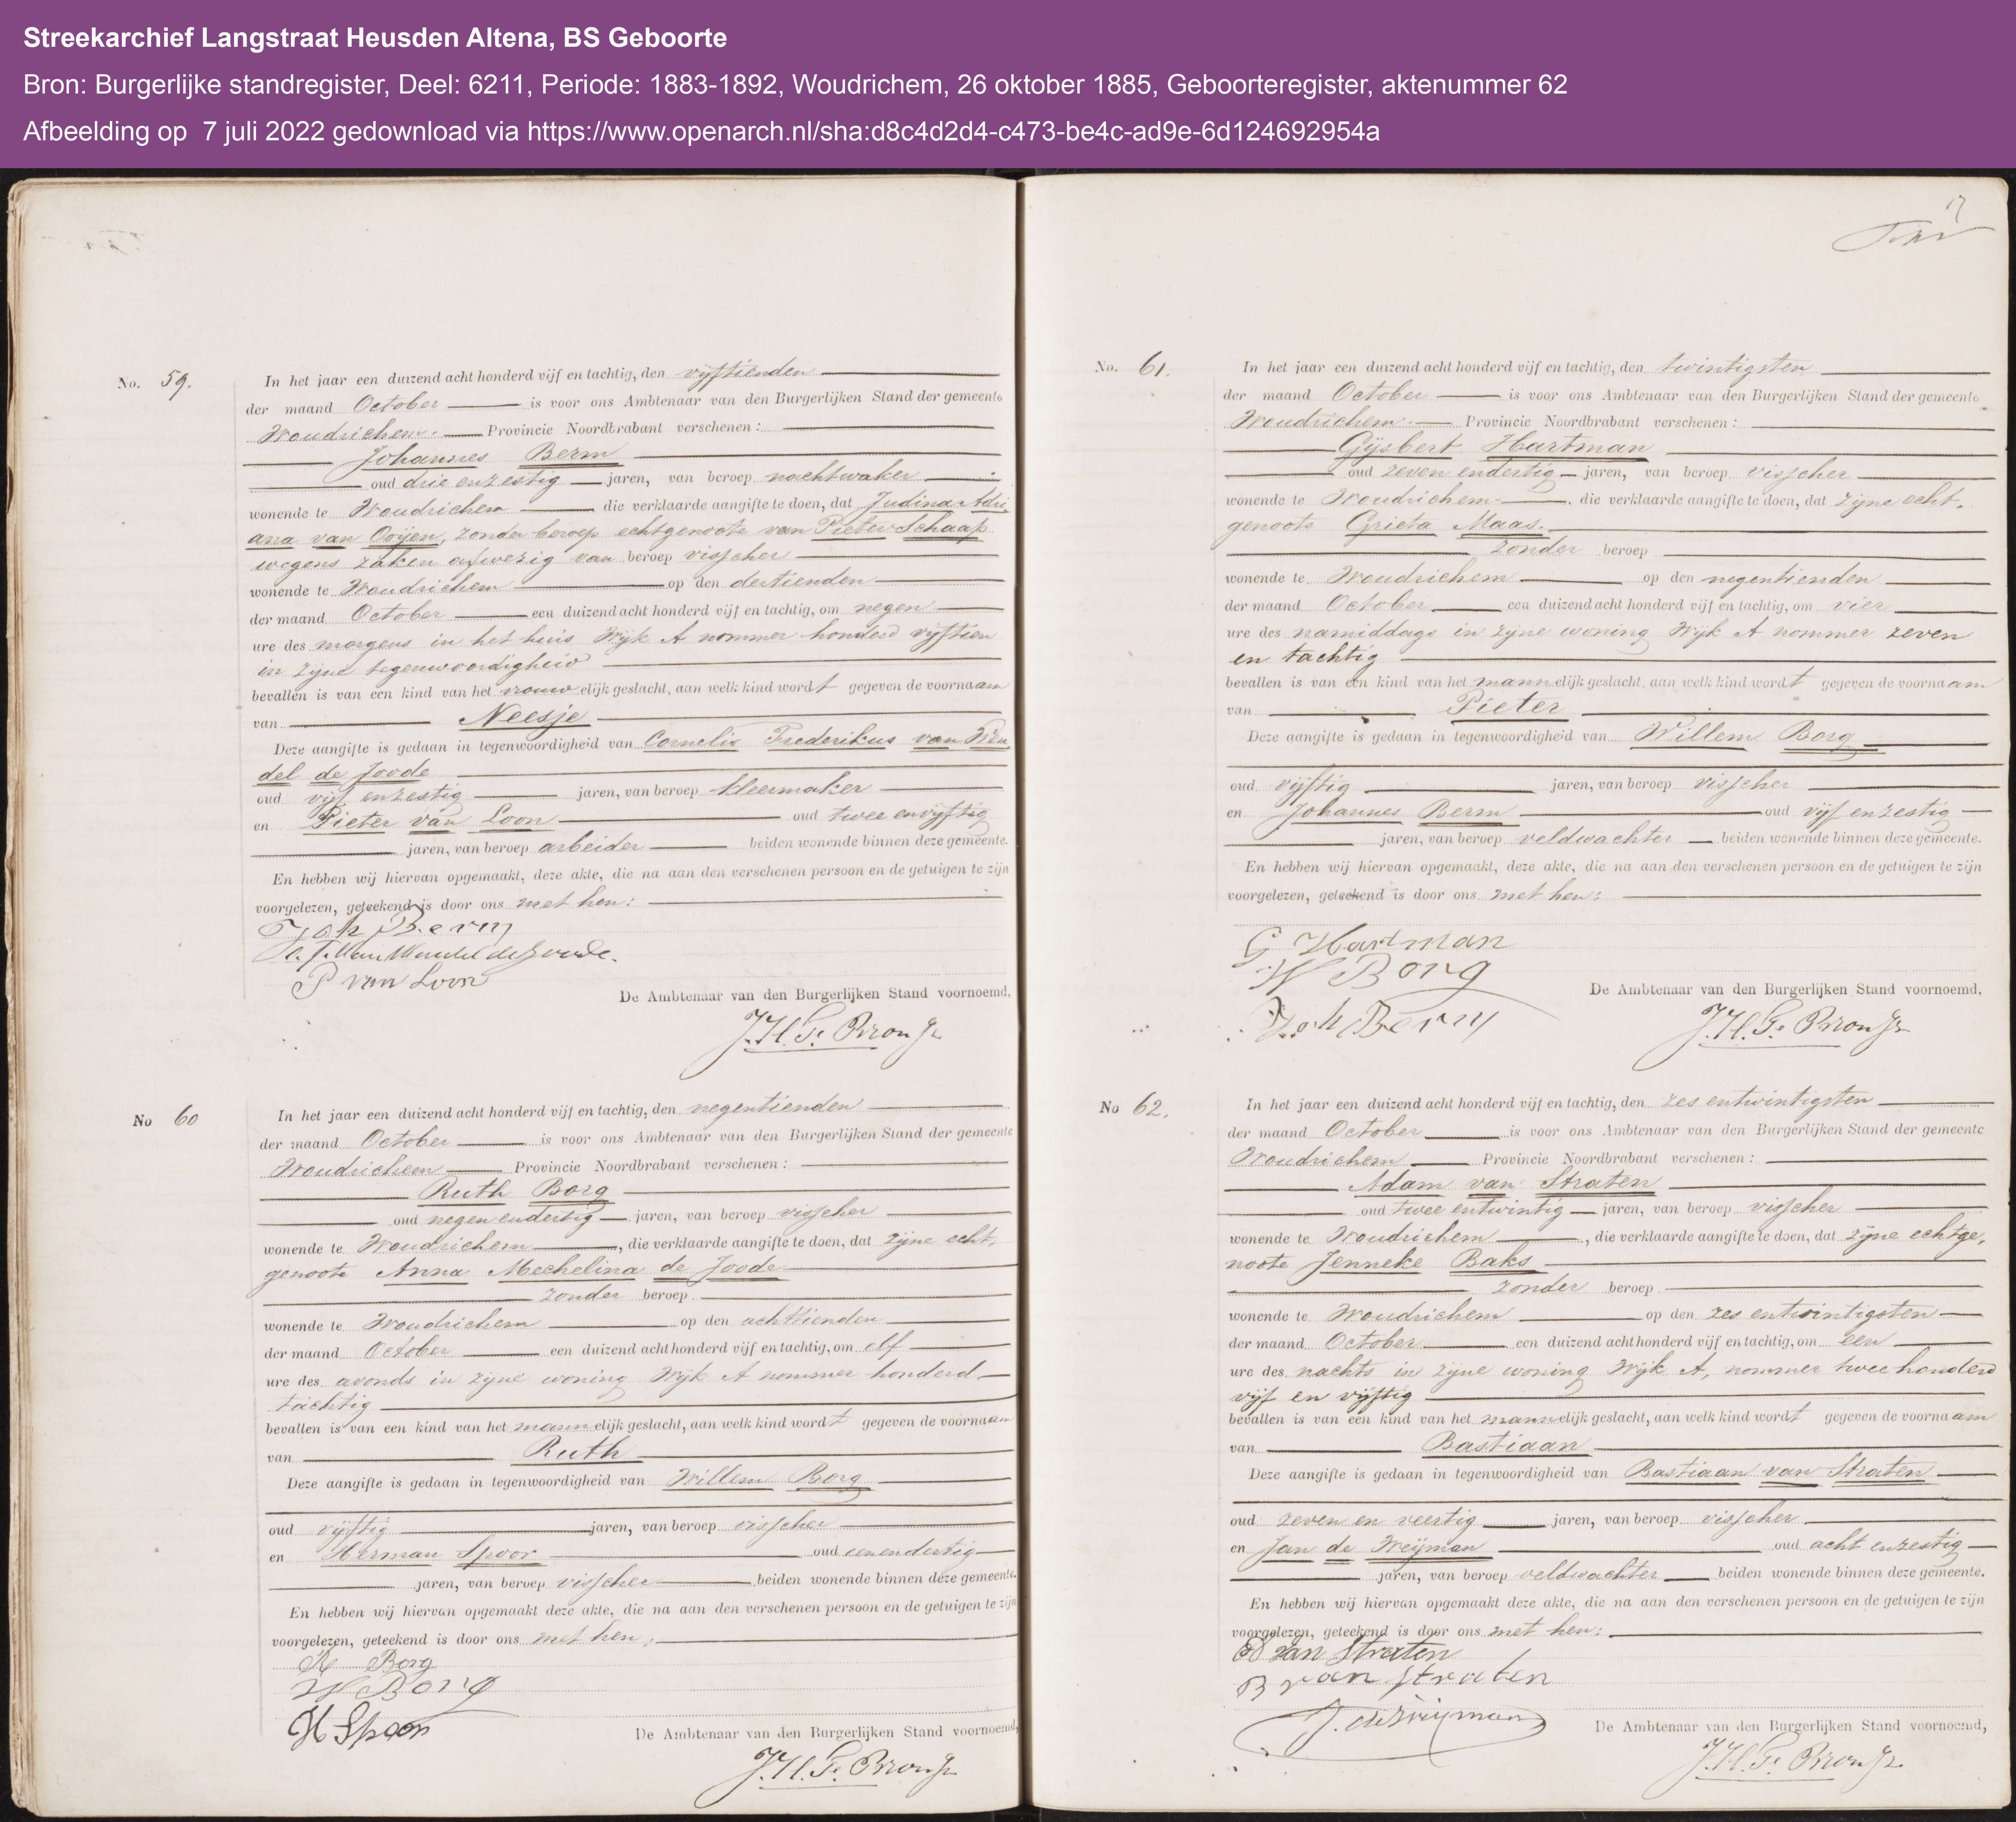 Streekarchief Langstraat Heusden Altena, BS Geboorte
Bron: Burgerlijke standregister, Deel: 6211, Periode: 1883-1892, Woudrichem, 26 oktober 1885, Geboorteregister, aktenummer 62
Afbeelding op 7 juli 2022 gedownload via https://www.openarch.nl/sha:d8c4d2d4-c473-be4c-ad9e-6d124692954a
No. 59.
In het jaar een duizend acht honderd vijf en tachtig, den vijftienden
der maand October is voor ons Ambtenaar van den Burgerlijken Stand der gemeente
Woudrichem. Provincie Noordbrabant verschenen:
Johannes Berm
oud drie enzestig jaren, van beroep nachtwaker
wonende te Woudrichem die verklaarde aangifte te doen, dat Judina Adri
ana van Ooijen, zonder beroep echtgenoote van Pieter Schaap
wegens zaken afwezig van beroep visscher
wonende te Woudrichem op den dertienden
der maand October een duizend acht honderd vijf en tachtig, om negen
ure des morgens in het huis Wijk A nommer honderd vijftien
in zijne tegenwoordigheid
bevallen is van een kind van het vrouwelijk geslacht, aan welk kind wordt gegeven de voornaam
van Neesje
Deze aangifte is gedaan in tegenwoordigheid van Cornelis Frederikus van Wen
del de Joode
oud vijf enzestig jaren, van beroep kleermaker
en Pieter van Loon oud twee envijftig
jaren, van beroep arbeider beiden wonende binnen deze gemeente.
En hebben wij hiervan opgemaakt, deze akte, die na aan den verschenen persoon en de getuigen te zijn
voorgelezen, geteekend is door ons met hen:
Joh Berm
C. F. Van Wendel de Joode.
P van Loon
De Ambtenaar van den Burgerlijken Stand voornoemd,
J.H.G. Bron Jr
No 60
In het jaar een duizend acht honderd vijf en tachtig, den negentienden
der maand October is voor ons Ambtenaar van den Burgerlijken Stand der gemeente
Woudrichem Provincie Noordbrabant verschenen:
Ruth Borg
oud negen endertig jaren, van beroep visscher
wonende te Woudrichem, die verklaarde aangifte te doen, dat zijne echt,
genoote Anna Mechelina de Joode
zonder beroep
wonende te Woudrichem op den achttienden
der maand October een duizend acht honderd vijf en tachtig, om elf
ure des avonds in zijne woning Wijk A nommer honderd
tachtig
bevallen is van een kind van het mannelijk geslacht, aan welk kind wordt gegeven de voornaam
van Ruth
Deze aangifte is gedaan in tegenwoordigheid van Willem Borg
oud vijftig jaren, van beroep visscher
en Herman Spoor oud eenendertig
jaren, van beroep visscher beiden wonende binnen deze gemeente.
En hebben wij hiervan opgemaakt deze akte, die na aan den verschenen persoon en de getuigen te zijn
voorgelezen, geteekend is door ons met hen:
R Borg
W Borg
H Spoor
De Ambtenaar van den Burgerlijken Stand voornoemd,
J.H.G. Bron Jr
17
No. 61.
In het jaar een duizend acht honderd vijf en tachtig, den twintigsten
der maand October is voor ons Ambtenaar van den Burgerlijken Stand der gemeente
Woudrichem. Provincie Noordbrabant verschenen:
Gijsbert Hartman
oud zeven endertig jaren, van beroep visscher
wonende te Woudrichem, die verklaarde aangifte te doen, dat zijne echt,
genoote Grieta Maas.
zonder beroep
wonende te Woudrichem op den negentienden
der maand October een duizend acht honderd vijf en tachtig, om vier
ure des namiddags in zijne woning Wijk A nommer zeven
en tachtig
bevallen is van een kind van het mannelijk geslacht, aan welk kind wordt gegeven de voornaam
van Pieter
Deze aangifte is gedaan in tegenwoordigheid van Willem Borg
oud vijftig jaren, van beroep visscher
en Johannes Berm oud vijf enzestig
jaren, van beroep veldwachter beiden wonende binnen deze gemeente.
En hebben wij hiervan opgemaakt, deze akte, die na aan den verschenen persoon en de getuigen te zijn
voorgelezen, geteekend is door ons met hen:
G Hartman
W Borg
Joh Berm
De Ambtenaar van den Burgerlijken Stand voornoemd,
J.H.G. Bron Jr
No 62.
In het jaar een duizend acht honderd vijf en tachtig, den zes entwintigsten
der maand October is voor ons Ambtenaar van den Burgerlijken Stand der gemeente
Woudrichem Provincie Noordbrabant verschenen:
Adam van Straten
oud twee entwintig jaren, van beroep visscher
wonende te Woudrichem, die verklaarde aangifte te doen, dat zijne echtge,
noote Jenneke Baks
zonder beroep
wonende te Woudrichem op den zes entwintigsten
der maand October een duizend acht honderd vijf en tachtig, om een
ure des nachts in zijne woning Wijk A, nommer twee honderd
vijf en vijftig
bevallen is van een kind van het mannelijk geslacht, aan welk kind wordt gegeven de voornaam
van Bastiaan
Deze aangifte is gedaan in tegenwoordigheid van Bastiaan van Straten
oud zeven en veertig jaren, van beroep visscher
en Jan de Weijman oud acht enzestig
jaren, van beroep veldwachter beiden wonende binnen deze gemeente.
En hebben wij hiervan opgemaakt deze akte, die na aan den verschenen persoon en de getuigen te zijn
voorgelezen, geteekend is door ons met hen:
A van Straten
B van Straten
J. de Weijman
De Ambtenaar van den Burgerlijken Stand voornoemd,
J.H.G. Bron Jr